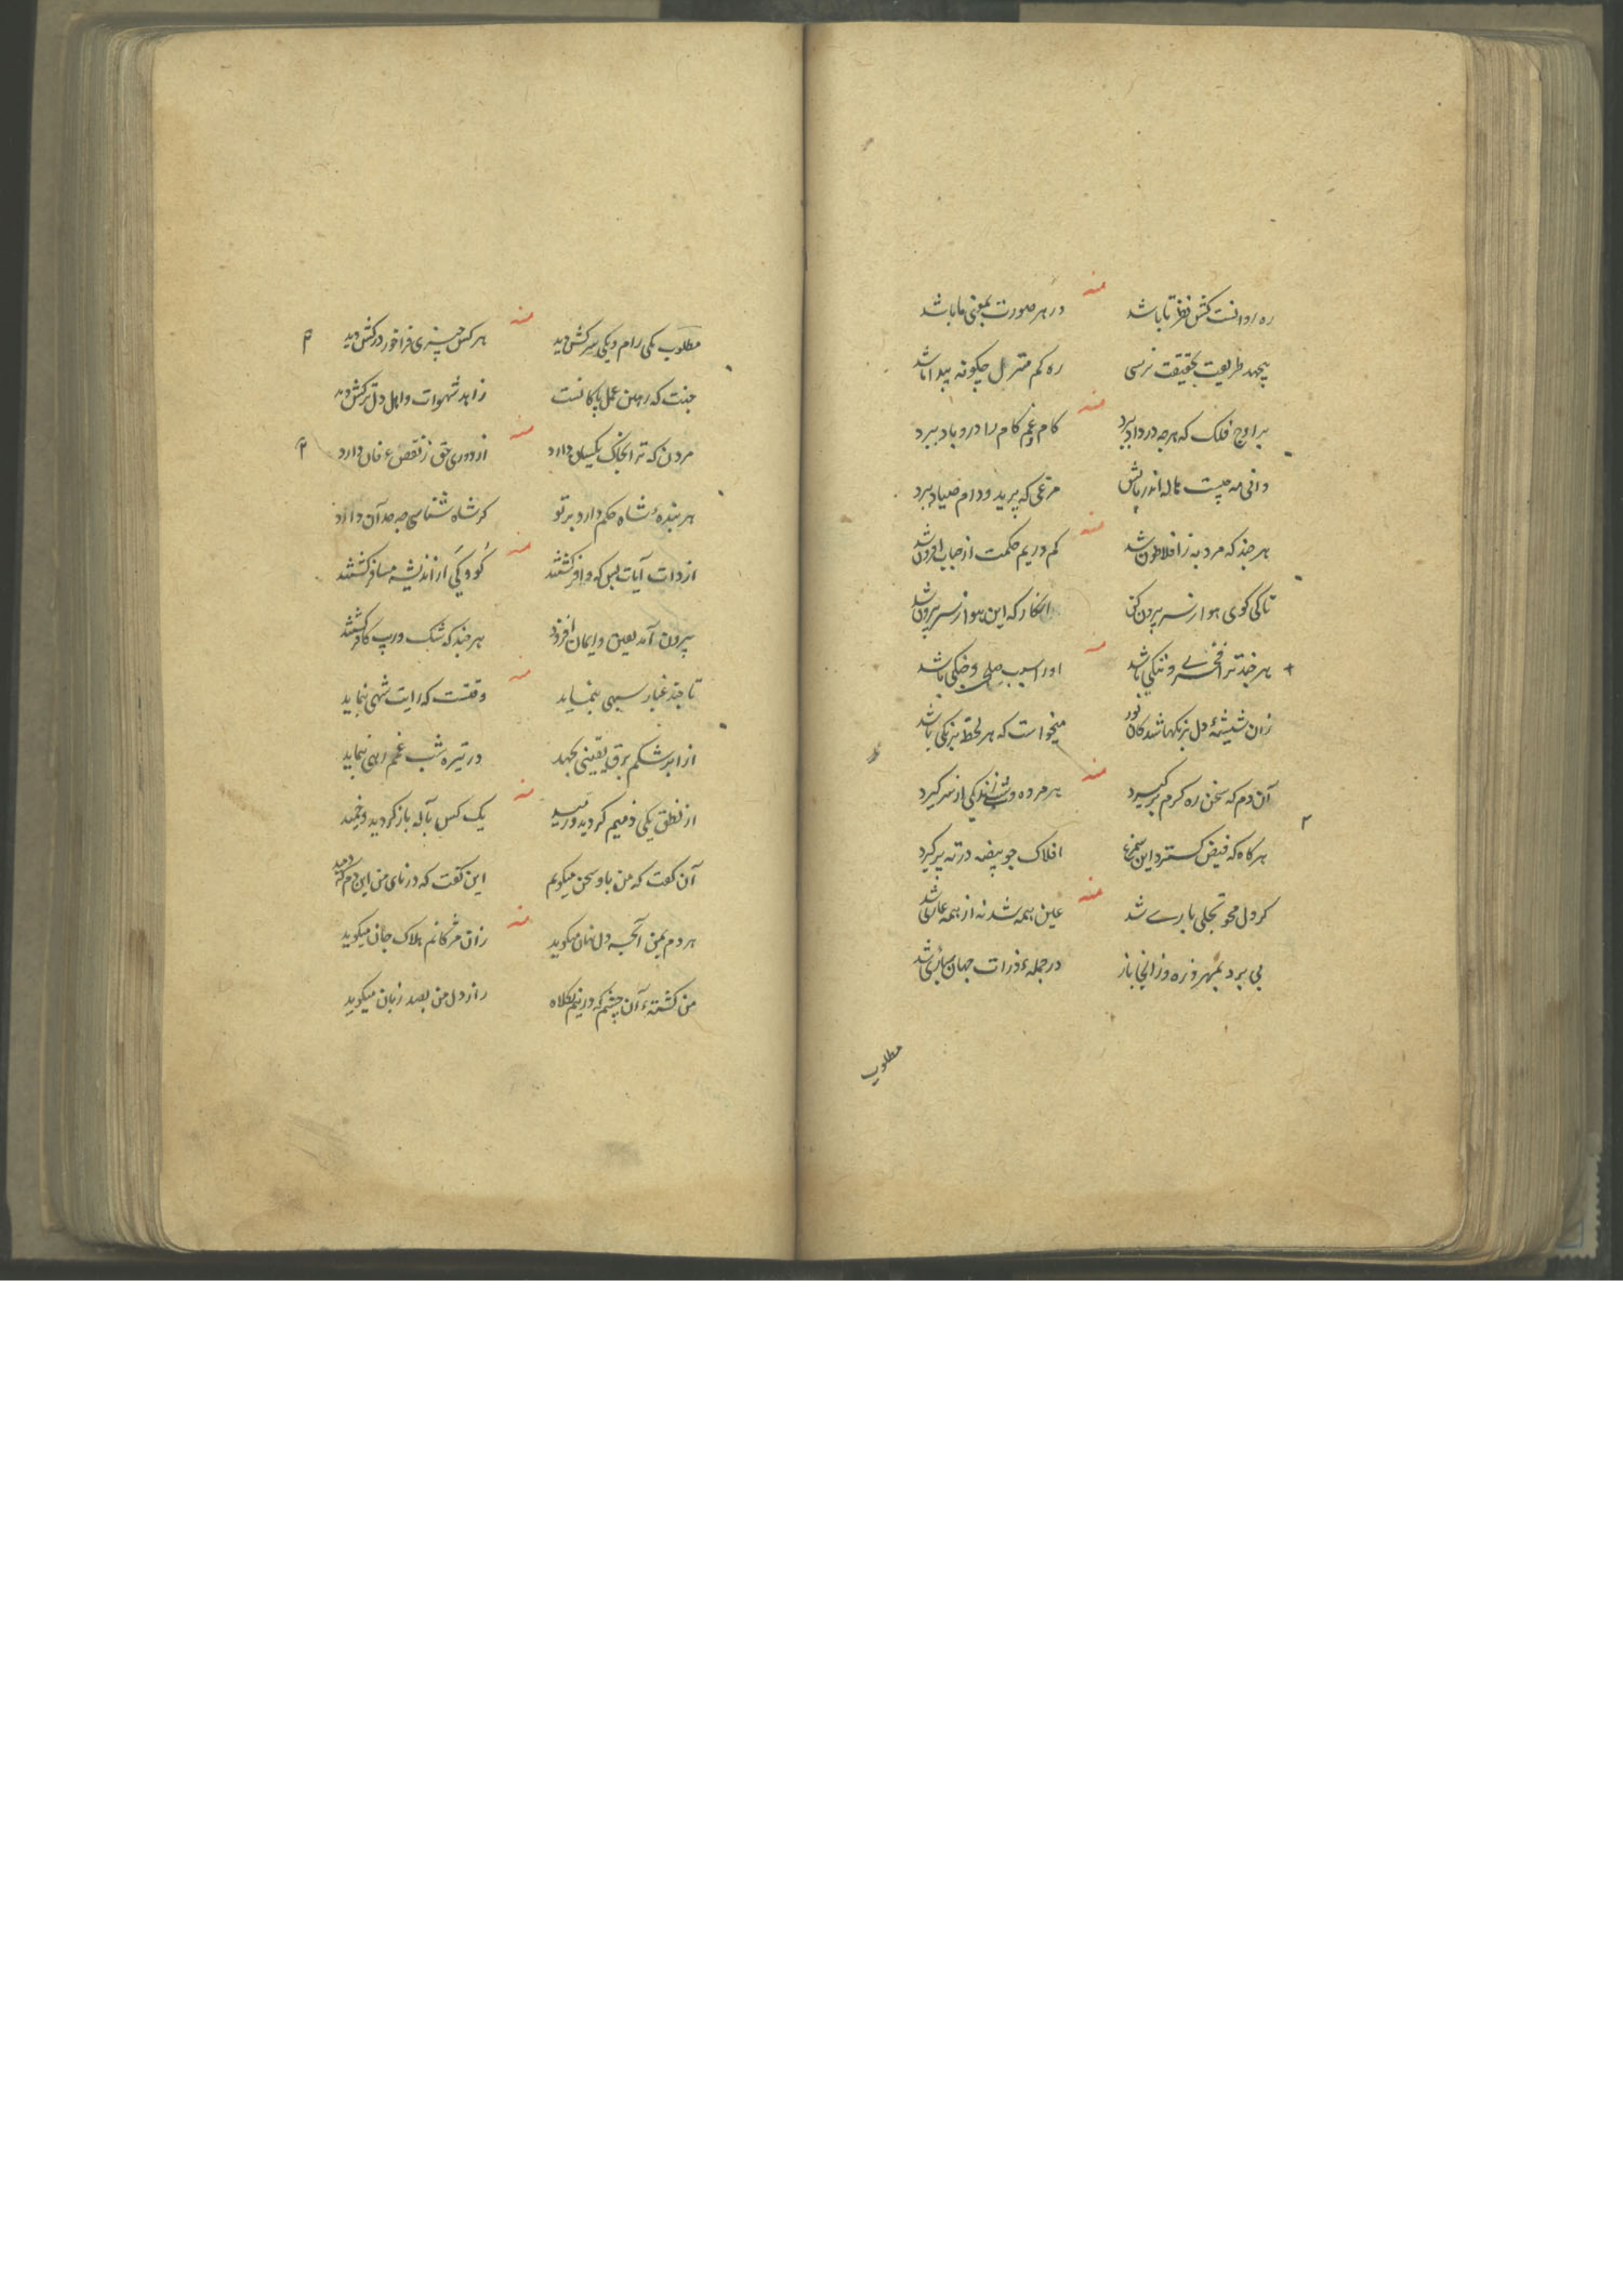 منه
ره روانست کش نظر تا باشد در هر صورت بمعنی ما باشد
بیجهد طریعت بحقیقت نرسی ره کم منزل چگونه پیدا باشد
منه
بر اوج فلک که هرچه در داد برد کام و غم کام را در و باد ببرد
دانی مه چیست هاله اندر مرغی که پرید و دام صیاد ببرد
منه
هر چند که مرد به ز افلاطون شد کم دریم حکمت از حباب افزون شد
تا کی کوی هوا ز سر بیرون کن انکار که این هوا ز سر بیرون شد
منه
هر چند ترا فخری و ننکی باشد او را سبب صلحی و جنکی باشد
زان شیشهٔ دل برنکها شد کان نور میخواست که هر لحظه برنکی باشد
منه
آن دم که سخن ره کرم برگیرد هر مرده وشی زندکی از سر گیرد
هر گاه که فیض گسترد این افلاک چو بیضه در ته پر گیرد
منه
گر دل محو تجلی باری شد عین همه شد نه از همه عاری شد
پی برد بمهر ذره وز انجا باز در جملهٔ ذرات جهان ساری شد
مطلوب
منه
مطلوب یکی رام و یکی سرکش دید هر کس چیزی فراخور درکش دید
جنت که رهین عمل پاکانست زاهد شهوات و اهل دل ترکش دید
منه
مردن که ترا بخاک یکسان دارد از دوری حق ز نقص عرفان دارد
هر بندهٔ شاه حکم دارد بر تو گر شاه شناسی چه حد آن دارد
منه
از ذات آیات بس که وافر گشتند گو و کی از اندیشه مسافر گشتند
بیرون آمد یعین و ایمان افزود هر چند که شک و ریب کافر گشتند
منه
تا چند غبار سیهی بنماید وقتست که رایت شهی بنماید
از ابر شکم برق یقینی بجهد در تیره شب غم رهی بنماید
منه
از نطق یکی ذمیم گردید و رسید یک کس بآله باز گردید و خمید
آن گفت که من با و سخن میکویم این گفت که در نای من این دم که دمید
منه
هر دم بمن آنچه دل نهان میکوید زان مژکانم هلاک جان میکوید
من کشتهٔ آن چشم که در نیم نکاه راز دل من بصد زبان میکوید